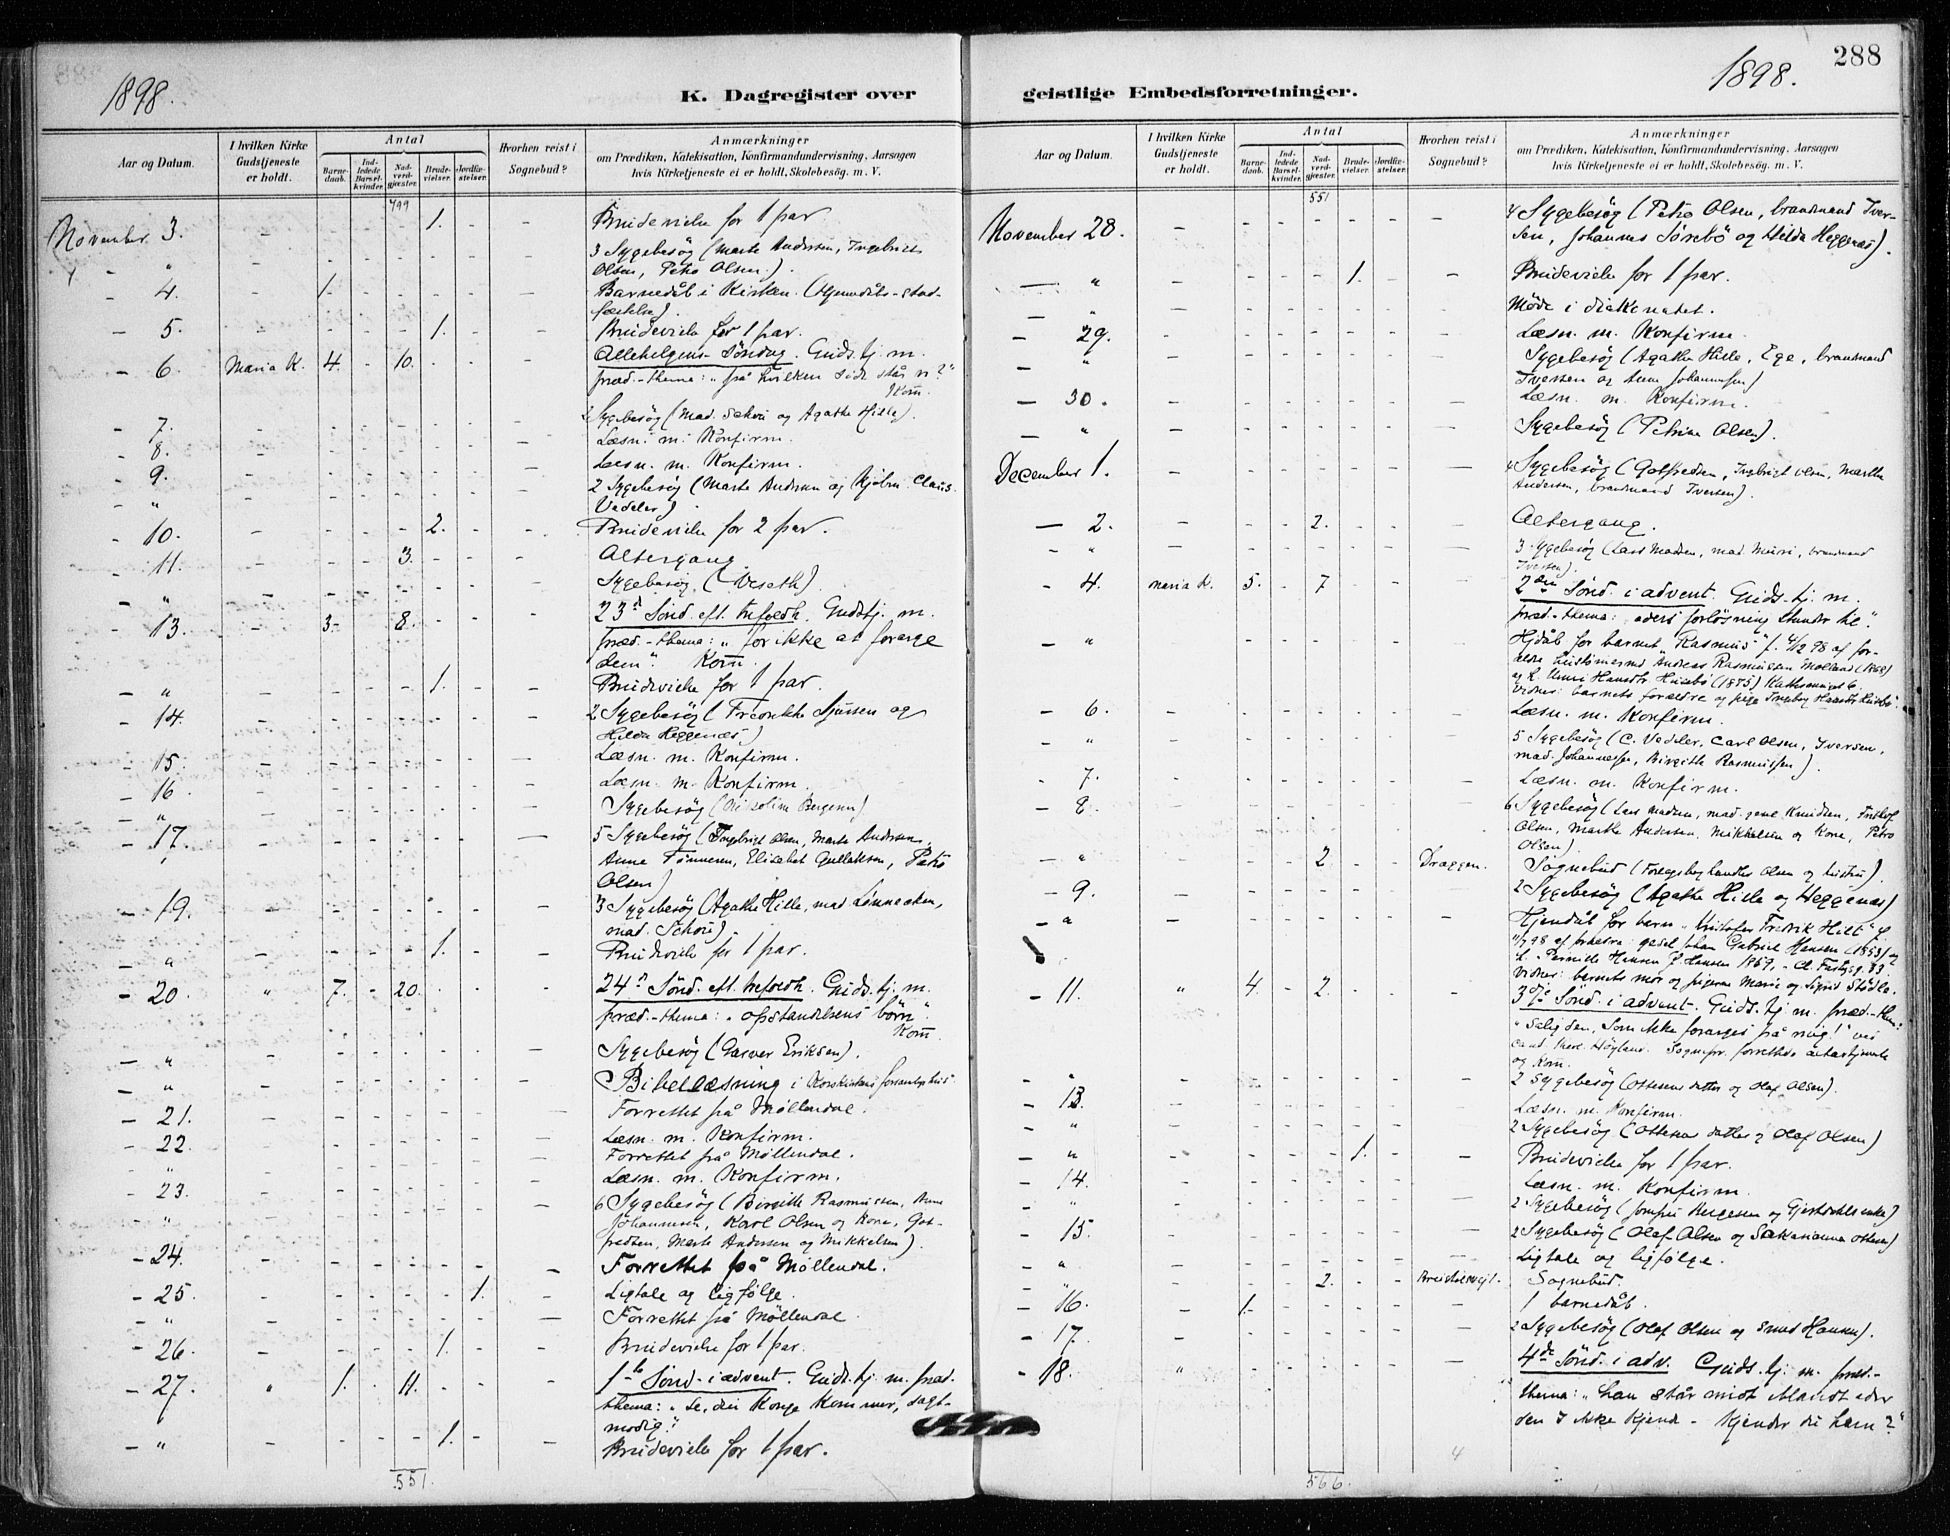 1898.
K. Dagregister over
Aar og Datum.
I hvilken Kirke Gudstjeneste er holdt.
Antal
Barnedaab.
Indledede Barselkvinder.
Nadverdgjæster.
Brudevielser.
Jordfæstelser.
Hvorhen reist i Sognebud?
Anmærkninger
om Prædiken, Katekisation, Konfirmandundervisning, Aarsagen
hvis Kirketjeneste ei er holdt, Skolebesøg. m. V.
November 3. 1. Brudevielse for 1 par
" 3 Sygebesøg (Marte Andersen, Ingebrigt
Olsen, Petra Olsen.)
4. 1. Barnedåb i Kirken. (Hjemmedåbs-stad-
fæstelse).
5. 1. Brudevielse for 1 par.
6. Maria K. 4. 10. Allehelgens-Søndag. Guds.tj. m.
præd.-thema: "på hvilken side står vi?"
Kom.
2 Sygebesøg (Mad. Schou og Agathe Hille).
7. Læsn. m. Konfirm.
8. Læsn. m. Konfirm.
9. 2 Sygebesøg (Marte Andersen og Kjøbm. Claus
Vedeler)
10. 2. Brudevielse for 2 par.
11. 3. Altergang.
" Sygebesøg (Veseth).
13. 3. 8. 23d Sønd. eft. trefoldh. Gudstj. m.
præd.-thema: "for ikke at forarge
dem". Kom.
" 1. Brudevielse for 1 par.
14. 2 Sygebesøg (Fredrikke Sjursen og
Hilda Heggenæs)
15. Læsn. m. Konfirm.
16. Læsn. m. Konfirm.
" Sygebesøg (Nikoline Bergersen)
17. 5 Sygebesøg (Ingebrigt Olsen, Marte Andersen,
Anne Tønnesen, Elisabet Gullaksen, Petra
Olsen)
19. 3 Sygebesøg (Agathe Hille, mad.
mad. Schou).
" 1. Brudevielse for 1 par.
20. " 7. 20. 24d Sønd. eft. trefoldh. Guds.tj. m.
præd.-thema: "opstandelsens børn".
Kom.
" Sygebesøg (Garver Eriksen).
" Bibellæsning i Korskirkens forsamlingshus
21. Forrettet på Møllendal.
22. Læsn. m. Konfirm.
" Forrettet på Møllendal.
23. Læsn. m. Konfirm.
" 6 Sygebesøg (Birgitte Rasmussen, Anne
Johannesen, Karl Olsen og Kone, Got-
fredsen, Marte Andersen og Mikkelsen).
24. Forrettet på Møllendal.
25. 1. Ligtale og ligfølge.
" Forrettet på Møllendal
26. 1. Brudevielse for 1 par.
27. " 1. 11. 1ste Sønd. i advent. Guds.tj. m. præd.
thema: "Se, din Konge kommer, sagt-
modig".
" 1. Brudevielse for 1 par.
551.
1898.
288
geistlige Embedsforretninger.
Aar og Datum.
I hvilken Kirke Gudstjeneste er holdt.
Antal
Barnedaab.
Indledede Barselkvinder.
Nadverdgjæster.
Brudevielser.
Jordfæstelser.
Hvorhen reist i Sognebud?
Anmærkninger
om Prædiken, Katekisation, Konfirmandundervisning, Aarsagen
hvis Kirketjeneste ei er holdt, Skolebesøg. m. V.
551
November 28. 4 Sygebesøg (Petra Olsen, brandmand Iver-
sen, Johannes Sørebø og Hilda Heggenæs).
" 1. Brudevielse for 1 par.
" Møde i diakonatet.
29. Læsn. m. Konfirm.
" Sygebesøg (Agathe Hille, Ege, brandmand
Iversen og Anne Johannesen)
30. Læsn. m. Konfirm.
" Sygebesøg (Petrine Olsen).
December 1. 4 Sygebesøg (Gotfredsen, Ingebrigt Olsen, Marthe
Andersen, brandmand Iversen).
2. 2. Altergang.
" 3 Sygebesøg (Lars Madsen, mad. Muri, brandmand
Iversen).
4. Maria K. 5. 7 2den Sønd. i advent. Guds.tj. m.
præd.-thema: "eders forløsning stunder til".
" Hjdåb for barnet "Rasmus" f. 4/12 98 af for-
ældre Andreas Rasmussen Molland (1868)
og h. Hansdtr. Husebø (1875)
vidner: barnets forældre og pige Ingeborg Hansdtr. Husebø.
6. Læsn. m. Konfirm.
" 5 Sygebesøg (C. Vedeler, Carl Olsen, Iversen,
mad. Johannessen, Birgitte Rasmussen).
7. Læsn. m. Konfirm.
8. 6 Sygebesøg (Lars Madsen, mad. Knudsen, Fritjof
Olsen, Marthe Andersen, Mikkelsen og Kone, Petra
Olsen).
" 2 Dræggen. Sognebud (Olsen og hustru).
9. 2 Sygebesøg (Agathe Hille og Heggenæs)
" Hjemdåb for barn "Kristofer Fredrik Hilt" f.
98 af forældre: Johan Gabriel Hansen (1853) og
h. Pernille Hansen f. Hansen 1859,
vidner: barnets mor og pigerne Marie og Sigrid Stødle.
11. " 4. 2. 3die Sønd. i advent. Guds.tj. m. præd.-them.:
"Salig den, som ikke forarges på mig!" ved
cand. theol. Høyland. Sognepr. forrettede altertjeneste
og Kom.
" 2 Sygebesøg (Ottesens datter og Olaf Olsen).
13. Læsn. m. Konfirm.
" 2 Sygebesøg (Ottesens datter og Olaf Olsen)
" 1. Brudevielse for 1 par.
14. Læsn. m. Konfirm.
" 2 Sygebesøg (jomfru Bergesen og Gjertsdals enke)
15. 2 Sygebesøg (Olaf Olsen og Sakarianna Ottesen)
" Ligtale og ligfølge.
" 2. Sognebud.
16. 1. 1 barnedåb.
17. 2 Sygebesøg (Olaf Olsen og smed Hansen).
18. " 4de Sønd. i adv. Guds.tj. m. præd.-
thema: "han står midt iblandt eder
den I ikke kjende - kjender du ham?"
4
566.